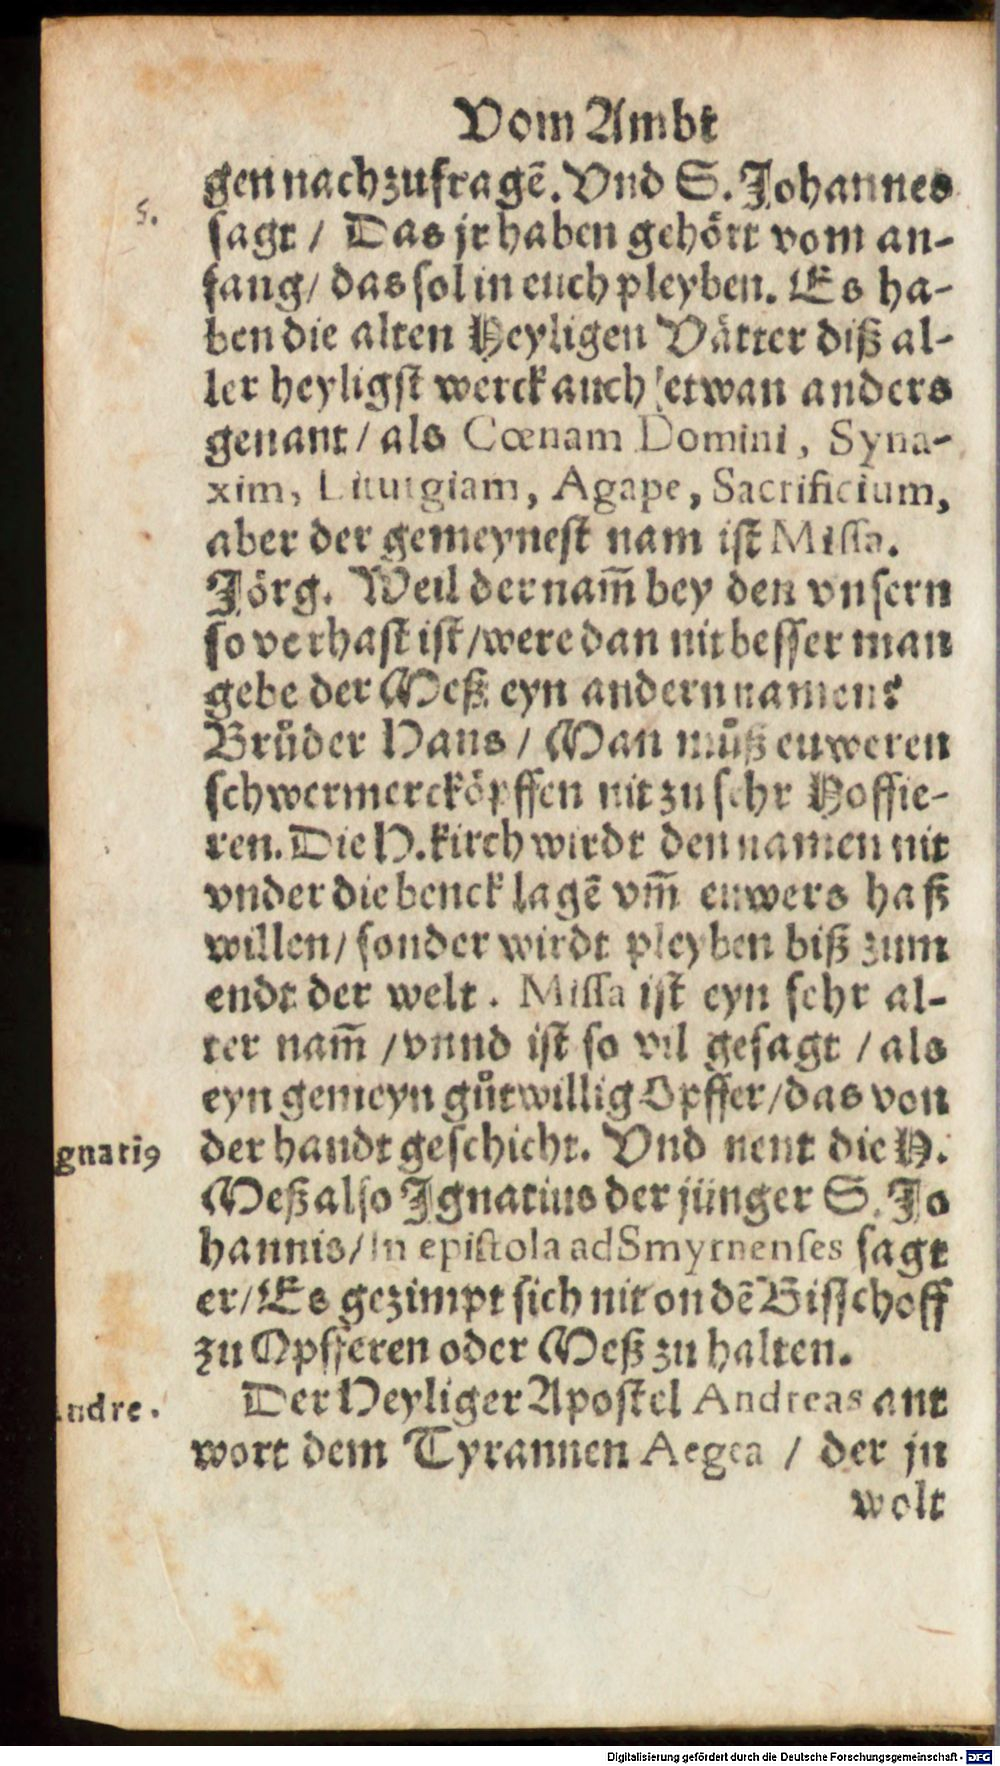 Vom Ambt
gen nachzufragē. Vnd S. Johannes
5.
sagt / Das jr haben gehört vom an-
fang / das sol in euch pleyben. Es ha-
ben die alten Heyligen Vätter diß al-
ler heyligst werck auch etwan anders
genant / als Cœnam Domini, Syna-
xim, Liturgiam, Agape, Sacrificium,
aber der gemeynest nam ist Missa.
Jörg. Weil der nam̄ bey den vnsern
so verhast ist / were dan nit besser man
gebe der Meß eyn andern namen?
Brůder Hans / Man můß euweren
schwermerckӧpffen nit zu sehr Hoffie-
ren. Die H. kirch wirdt den namen nit
vnder die benck lagē vm̄ euwers haß
willen / sonder wirdt pleyben biß zum
endt der welt. Missa ist eyn sehr al-
ter nam̄ / vnnd ist so vil gesagt / als
eyn gemeyn gůtwillig Opffer / das von
gnatiꝰ der handt geschicht. Vnd nent die H.
Meß also Ignatius der jünger S. Jo
hannis / In epistola ad Smyrnenses sagt
er / Es gezimpt sich nit on dē Bisschoff
zu Opfferen oder Meß zu halten.
Andre. Der Heyliger Apostel Andreas ant
wort dem Tyrannen Aegea / der jn
wolt
Digitalisierung gefördert durch die Deutsche Forschungsgemeinschaft - DFG